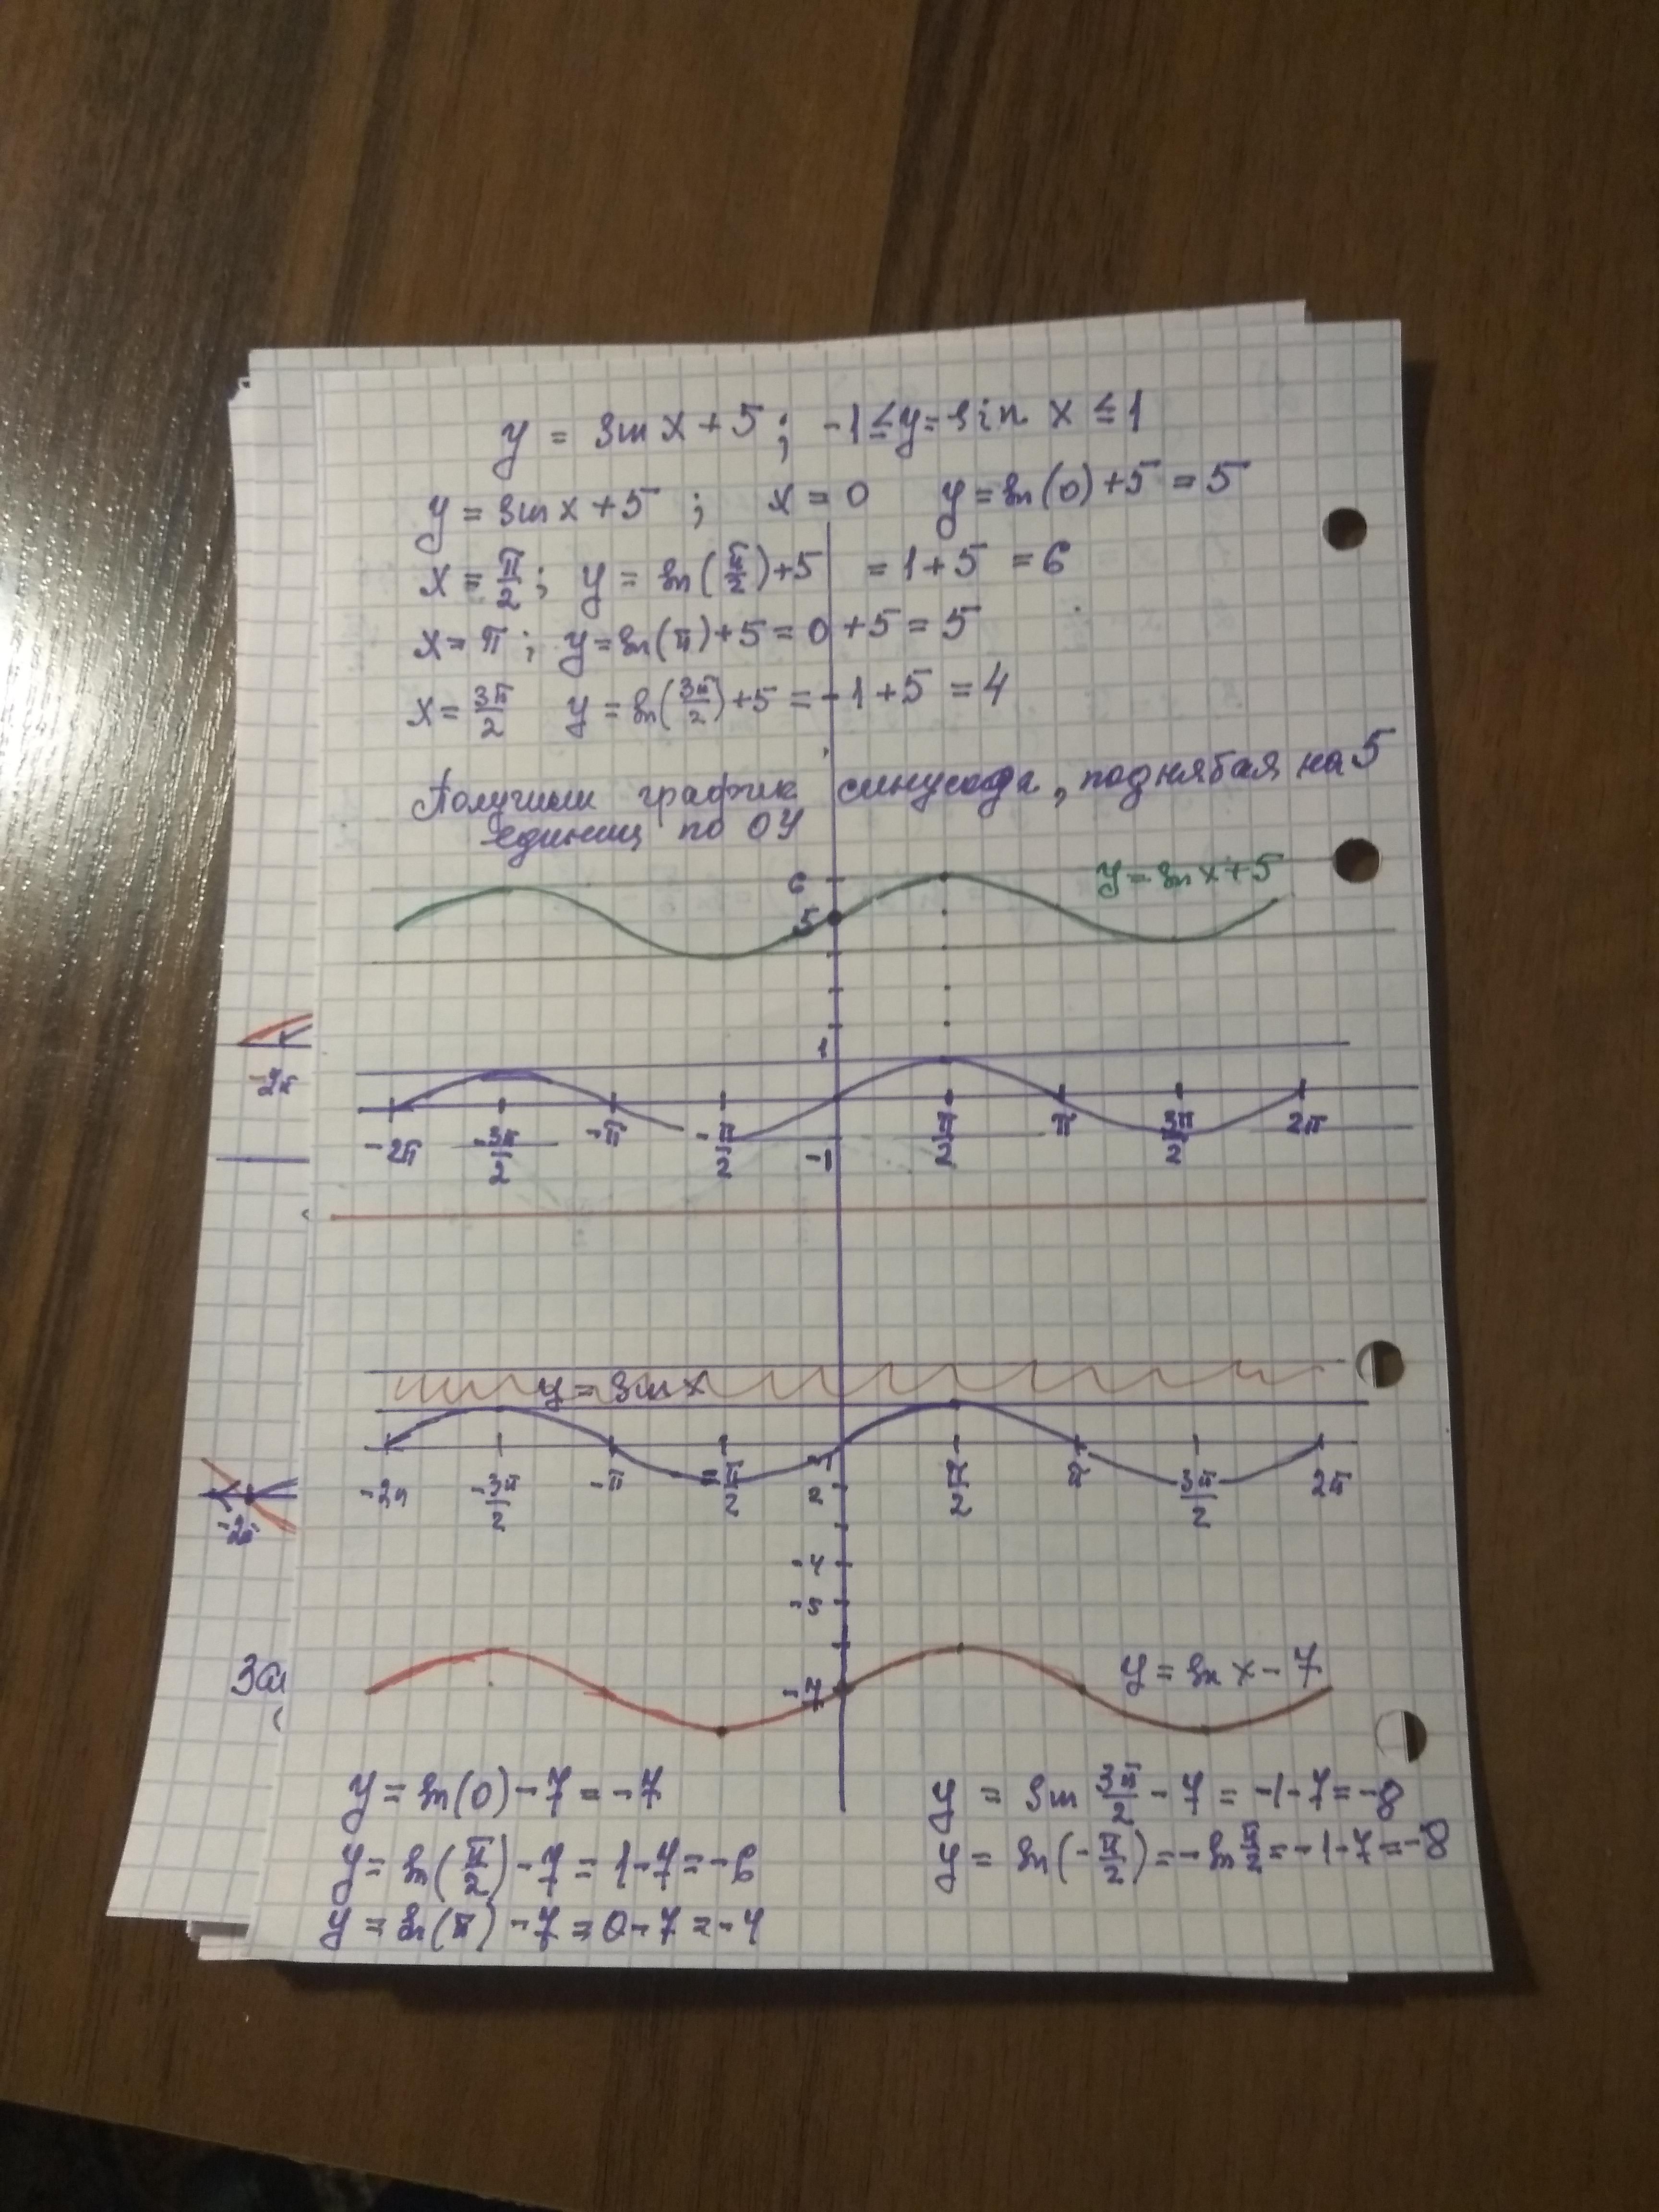 y = sin x + 5 ; -1 ≤ y = sin x ≤ 1
y = sin x + 5 ; x = 0 y = sin(0) + 5 = 5
x = π/2 ; y = sin(π/2) + 5 = 1 + 5 = 6
x = π ; y = sin(π) + 5 = 0 + 5 = 5
x = 3π/2 y = sin(3π/2) + 5 = -1 + 5 = 4
Получим график синусоида, поднятая на 5
единиц по ОУ
6 y = sin x + 5
5
1
-2π
-2π -3π/2 -π -π/2 -1 π/2 π 3π/2 2π
y = sin x
-2π -3π/2 -π -π/2 -1 π/2 π 3π/2 2π
2
-2π
-4
-5
y = sin x - 7
-7
y = sin(0) - 7 = -7
y = sin(π/2) - 7 = 1 - 7 = -6
y = sin(π) - 7 = 0 - 7 = -7
y = sin 3π/2 - 7 = -1 - 7 = -8
y = sin(-π/2) = -sin π/2 = -1 - 7 = -8